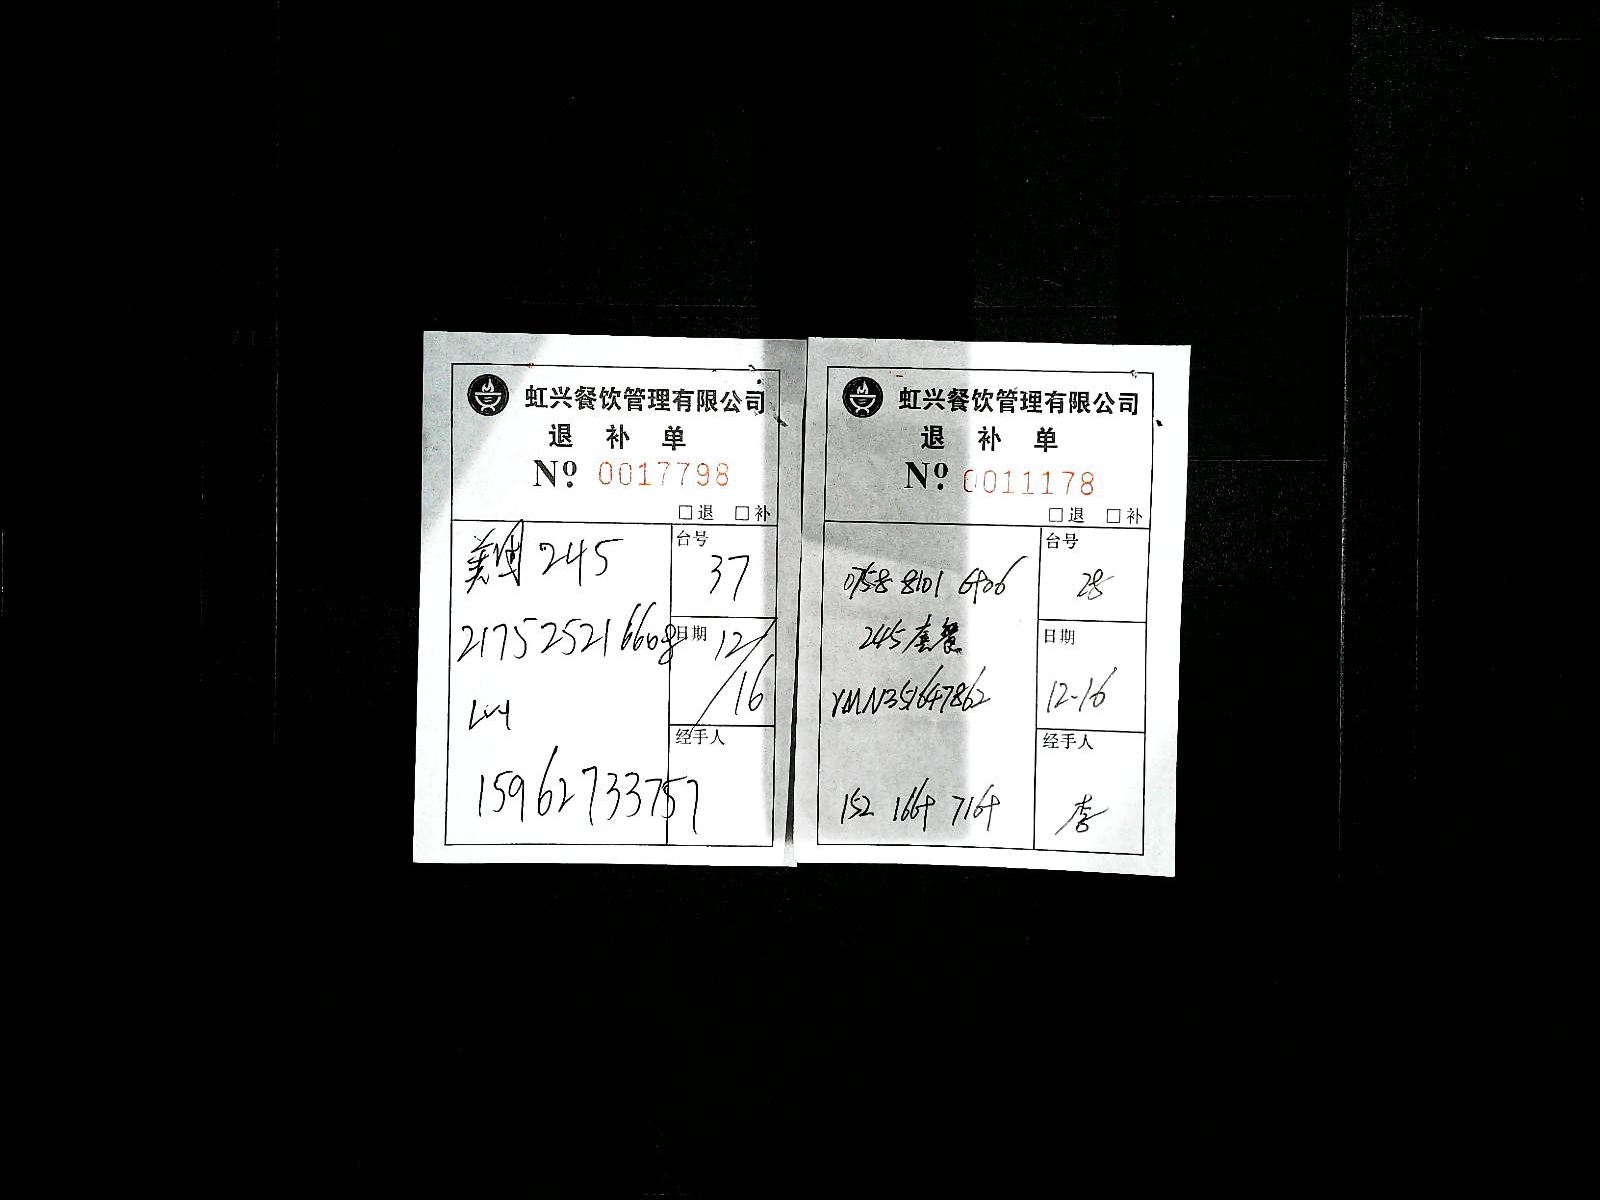 虹兴餐饮管理有限公司
退 补 单
Nº: 0017798
□退 □补
美团 245
2175252166608
Lv4
15962733757
台号
37
日期
12/16
经手人
虹兴餐饮管理有限公司
退 补 单
Nº: 0011178
□退 □补
0758 8101 6406
245套餐
YMN351647862
152 1664 7164
台号
28
日期
12-16
经手人
李